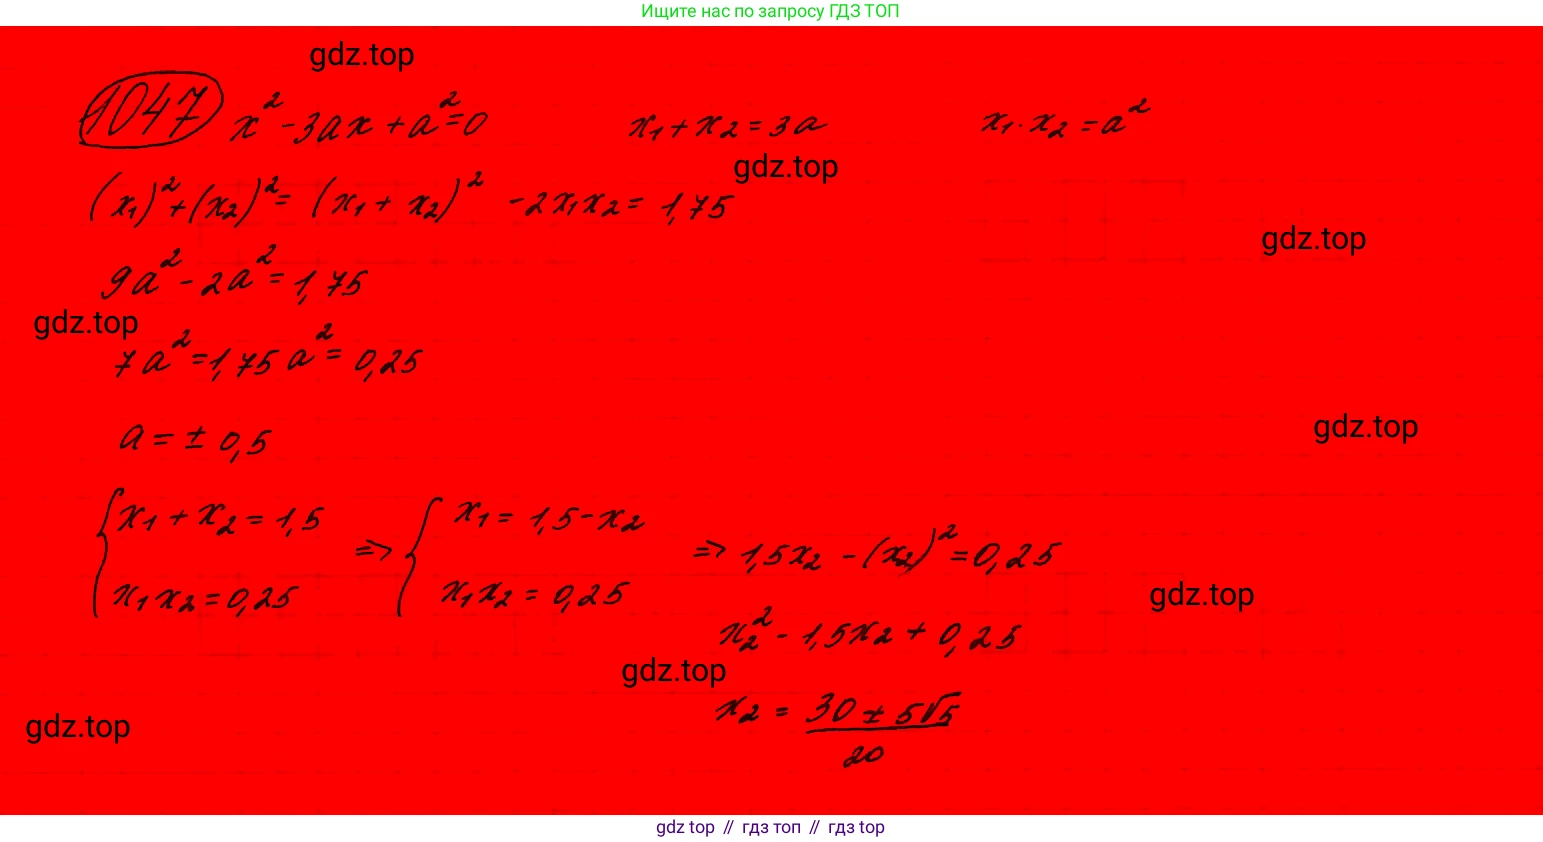 Ищите нас по запросу ГДЗ ТОП
gdz.top
1047 x² - 3ax + a² = 0 x₁ + x₂ = 3a x₁ · x₂ = a²
gdz.top
(x₁)² + (x₂)² = (x₁ + x₂)² - 2x₁x₂ = 1,75
gdz.top
9a² - 2a² = 1,75
gdz.top
7a² = 1,75 a² = 0,25
gdz.top
a = ± 0,5
{x₁ + x₂ = 1,5 ⇒ {x₁ = 1,5 - x₂ ⇒ 1,5x₂ - (x₂)² = 0,25
x₁x₂ = 0,25 x₁x₂ = 0,25
gdz.top
x₂² - 1,5x₂ + 0,25
gdz.top
x₂ = (30 ± 5√5)/20
gdz.top
gdz top // гдз топ // гдз top